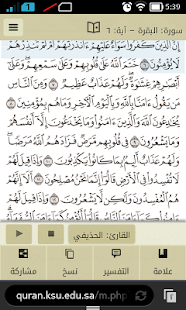 5:39
سورة: البقرة - آية: ٦
إِنَّ ٱلَّذِينَ كَفَرُوا۟ سَوَآءٌ عَلَيْهِمْ ءَأَنذَرْتَهُمْ أَمْ لَمْ تُنذِرْهُمْ
لَا يُؤْمِنُونَ ٦ خَتَمَ ٱللَّهُ عَلَىٰ قُلُوبِهِمْ وَعَلَىٰ سَمْعِهِمْ وَعَلَىٰٓ
أَبْصَٰرِهِمْ غِشَٰوَةٌ وَلَهُمْ عَذَابٌ عَظِيمٌ ٧ وَمِنَ ٱلنَّاسِ
مَن يَقُولُ ءَامَنَّا بِٱللَّهِ وَبِٱلْيَوْمِ ٱلْءَاخِرِ وَمَا هُم بِمُؤْمِنِينَ ٨
يُخَٰدِعُونَ ٱللَّهَ وَٱلَّذِينَ ءَامَنُوا۟ وَمَا يَخْدَعُونَ إِلَّآ أَنفُسَهُمْ
وَمَا يَشْعُرُونَ ٩ فِى قُلُوبِهِم مَّرَضٌ فَزَادَهُمُ ٱللَّهُ مَرَضًا
وَلَهُمْ عَذَابٌ أَلِيمٌۢ بِمَا كَانُوا۟ يَكْذِبُونَ ١٠ وَإِذَا قِيلَ لَهُمْ
لَا تُفْسِدُوا۟ فِى ٱلْأَرْضِ قَالُوٓا۟ إِنَّمَا نَحْنُ مُصْلِحُونَ ١١
أَلَآ إِنَّهُمْ هُمُ ٱلْمُفْسِدُونَ وَلَٰكِن لَّا يَشْعُرُونَ ١٢ وَإِذَا قِيلَ لَهُمْ
القارئ: الحذيفي
علامة
التفسير
نسخ
مشاركة
quran.ksu.edu.sa/m.php